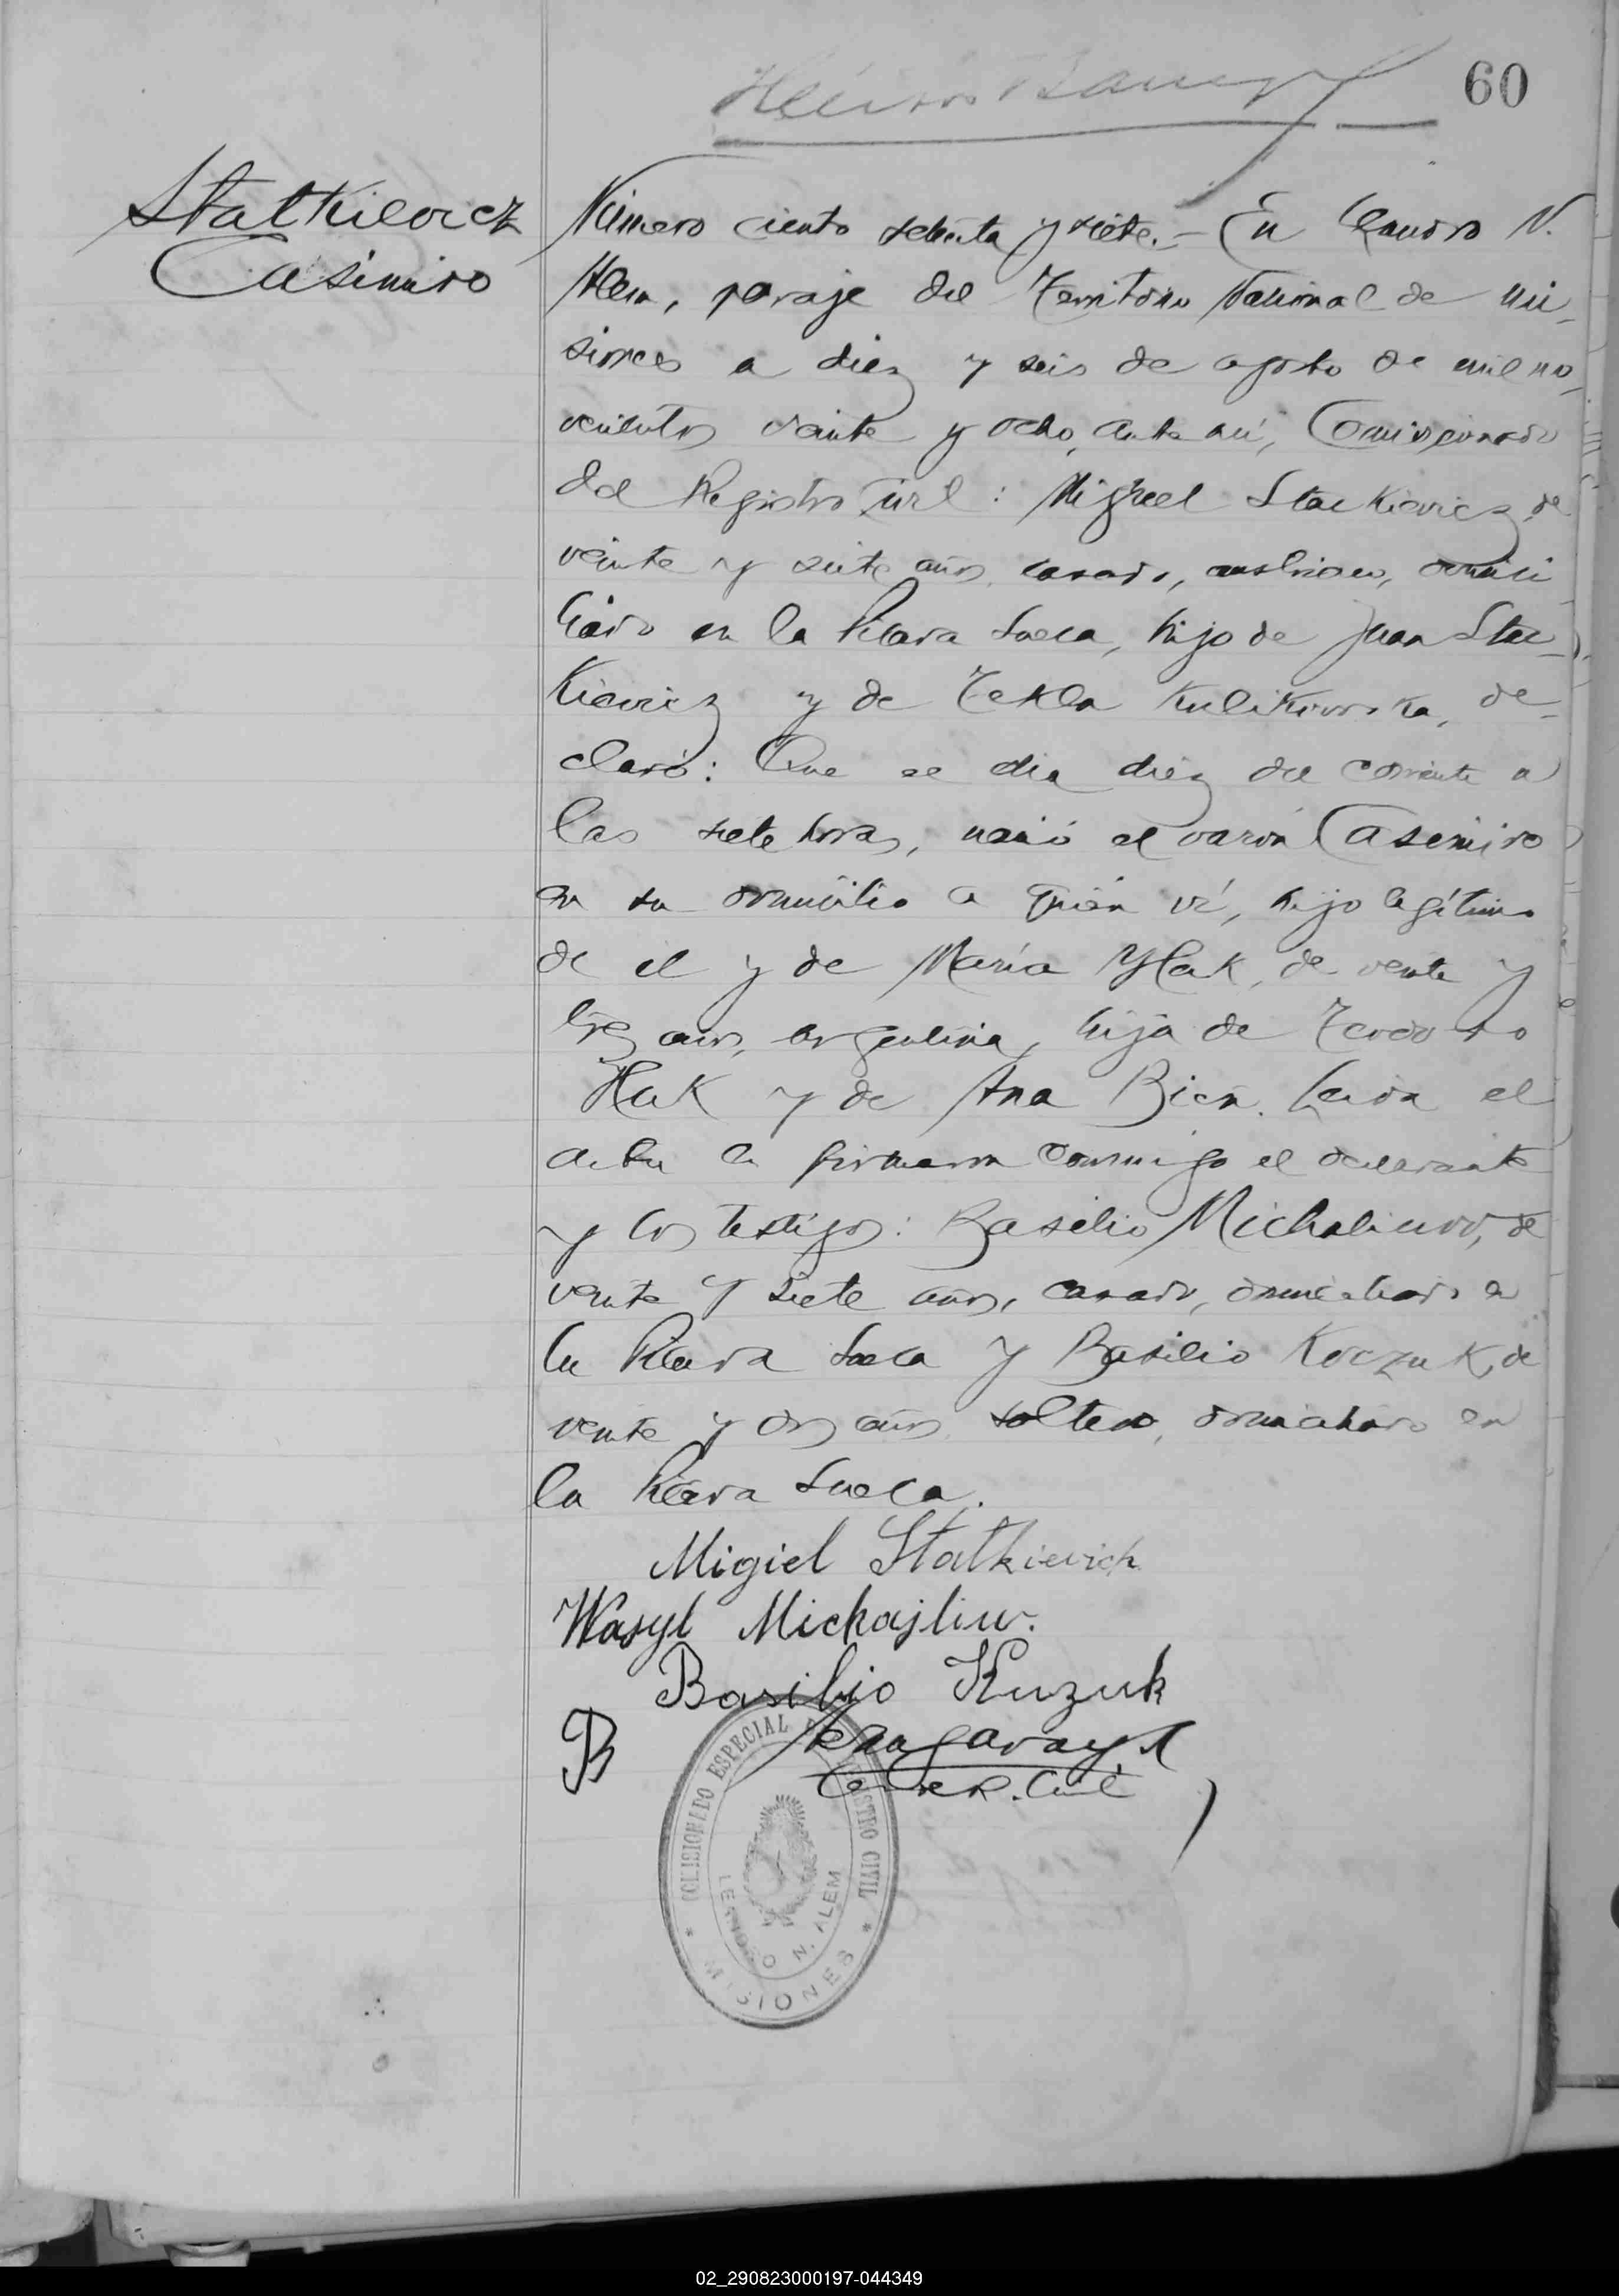 60
Statkievicz
Casimiro
Número ciento setenta y siete.- En Leandro N.
Alem, paraje del Territorio Nacional de Mi-
siones a diez y seis de agosto de mil no-
vecientos veinte y ocho, ante mí, Comisionado
del Registro Civil: Miguel Stackievicz, de
veinte y siete años, casado, austriaco, domici
liado en la Picada Sueca, hijo de Juan Stac-
kievicz y de Tekla Kulikowska, de-
claró: Que el dia diez del corriente a
las siete horas, nació el varón Casimiro
en su domicilio a quién ví, hijo legítimo
de el y de María Hlak, de veinte y
tres años, argentina, hija de Teodoro
Hlak y de Ana Bien. Leida el
acta la firmaron conmigo el declarante
y los testigos: Basilio Michaliuw, de
veinte y siete años, casado, domiciliado en
la Picada Sueca y Basilio Koczuk, de
veinte y dos años, soltero, domiciliado en
la Picada Sueca.
Migiel Statkievich
Wasyl Michajliw.
Basilio Kuzuk
B
Com. R. Civil
COMISIONADO ESPECIAL DEL REGISTRO CIVIL
LEANDRO N. ALEM
* MISIONES *
02_290823000197-044349